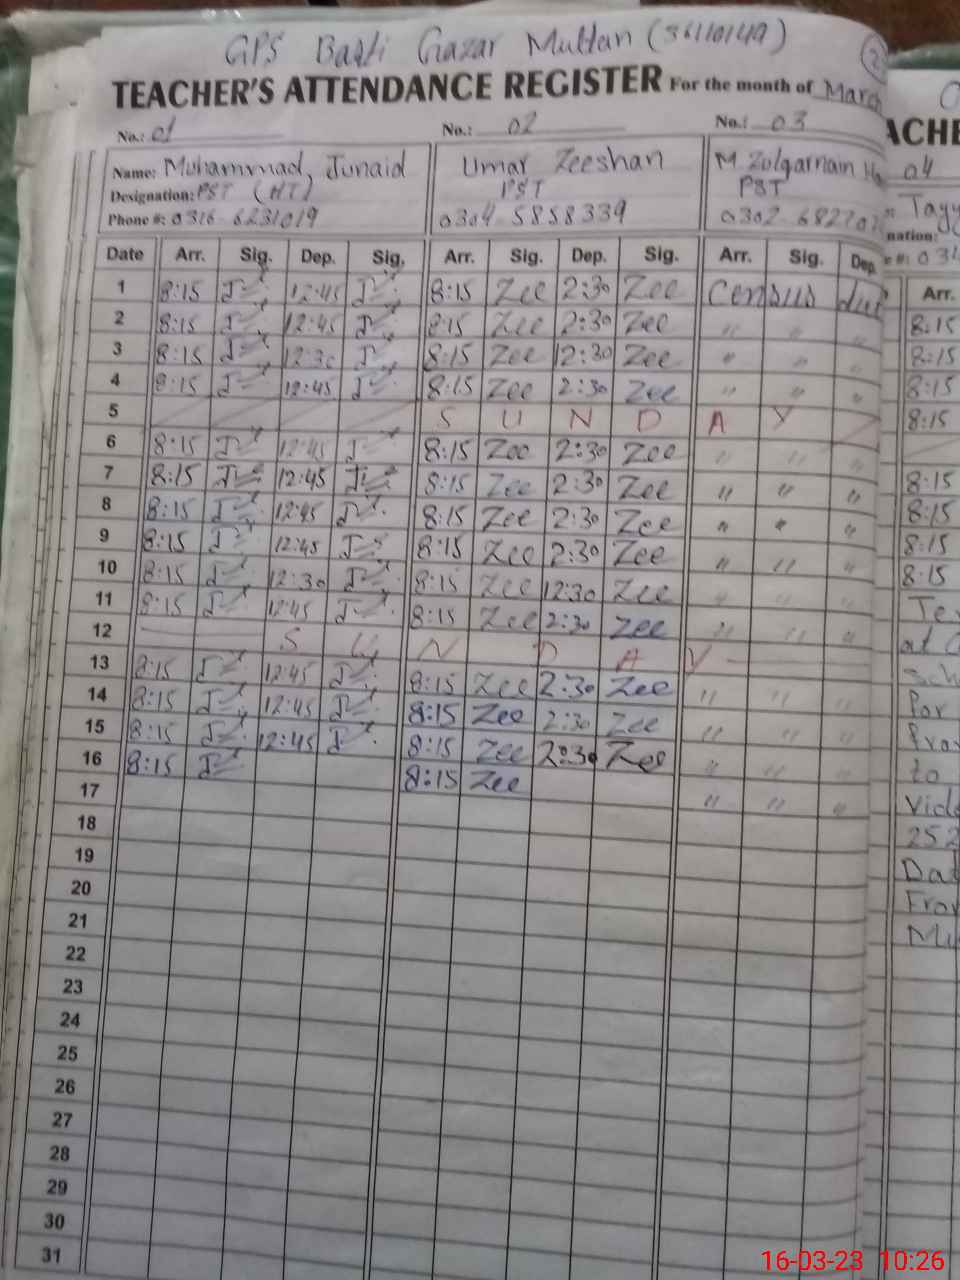 GPS Basti Gazar Multan (36110149)
TEACHER'S ATTENDANCE REGISTER For the month of March
No.: 01 No.: 02 No.: 03
Name: Muhammad Junaid Umar Zeeshan M. Zulqarnain
Designation: PST (HT) PST PST
Phone #: 0316-6231019 0304-5858339
Date Arr. Sig. Dep. Sig. Arr. Sig. Dep. Sig. Arr. Sig. Dep.
1 8:15 12:45 8:15 Zee 2:30 Zee Census
2 8:15 12:45 8:15 Zee 2:30 Zee " " "
3 8:15 12:30 8:15 Zee 12:30 Zee " " "
4 8:15 12:45 8:15 Zee 2:30 Zee " " "
5 S U N D A Y
6 8:15 12:45 8:15 Zee 2:30 Zee " " "
7 8:15 12:45 8:15 Zee 2:30 Zee " " "
8 8:15 12:45 8:15 Zee 2:30 Zee " " "
9 8:15 12:45 8:15 Zee 2:30 Zee " " "
10 8:15 12:30 8:15 Zee 12:30 Zee " " "
11 8:15 12:45 8:15 Zee 2:30 Zee " " "
12 S U N D A Y
13 8:15 12:45 8:15 Zee 2:30 Zee " " "
14 8:15 12:45 8:15 Zee 2:30 Zee " " "
15 8:15 12:45 8:15 Zee 2:30 Zee " " "
16 8:15 8:15 Zee " " "
17
18
19
20
21
22
23
24
25
26
27
28
29
30
31
ACHE
04
Arr.
8:15
8:15
8:15
8:15
8:15
8:15
8:15
8:15
at
For
to
252
16-03-23 10:26